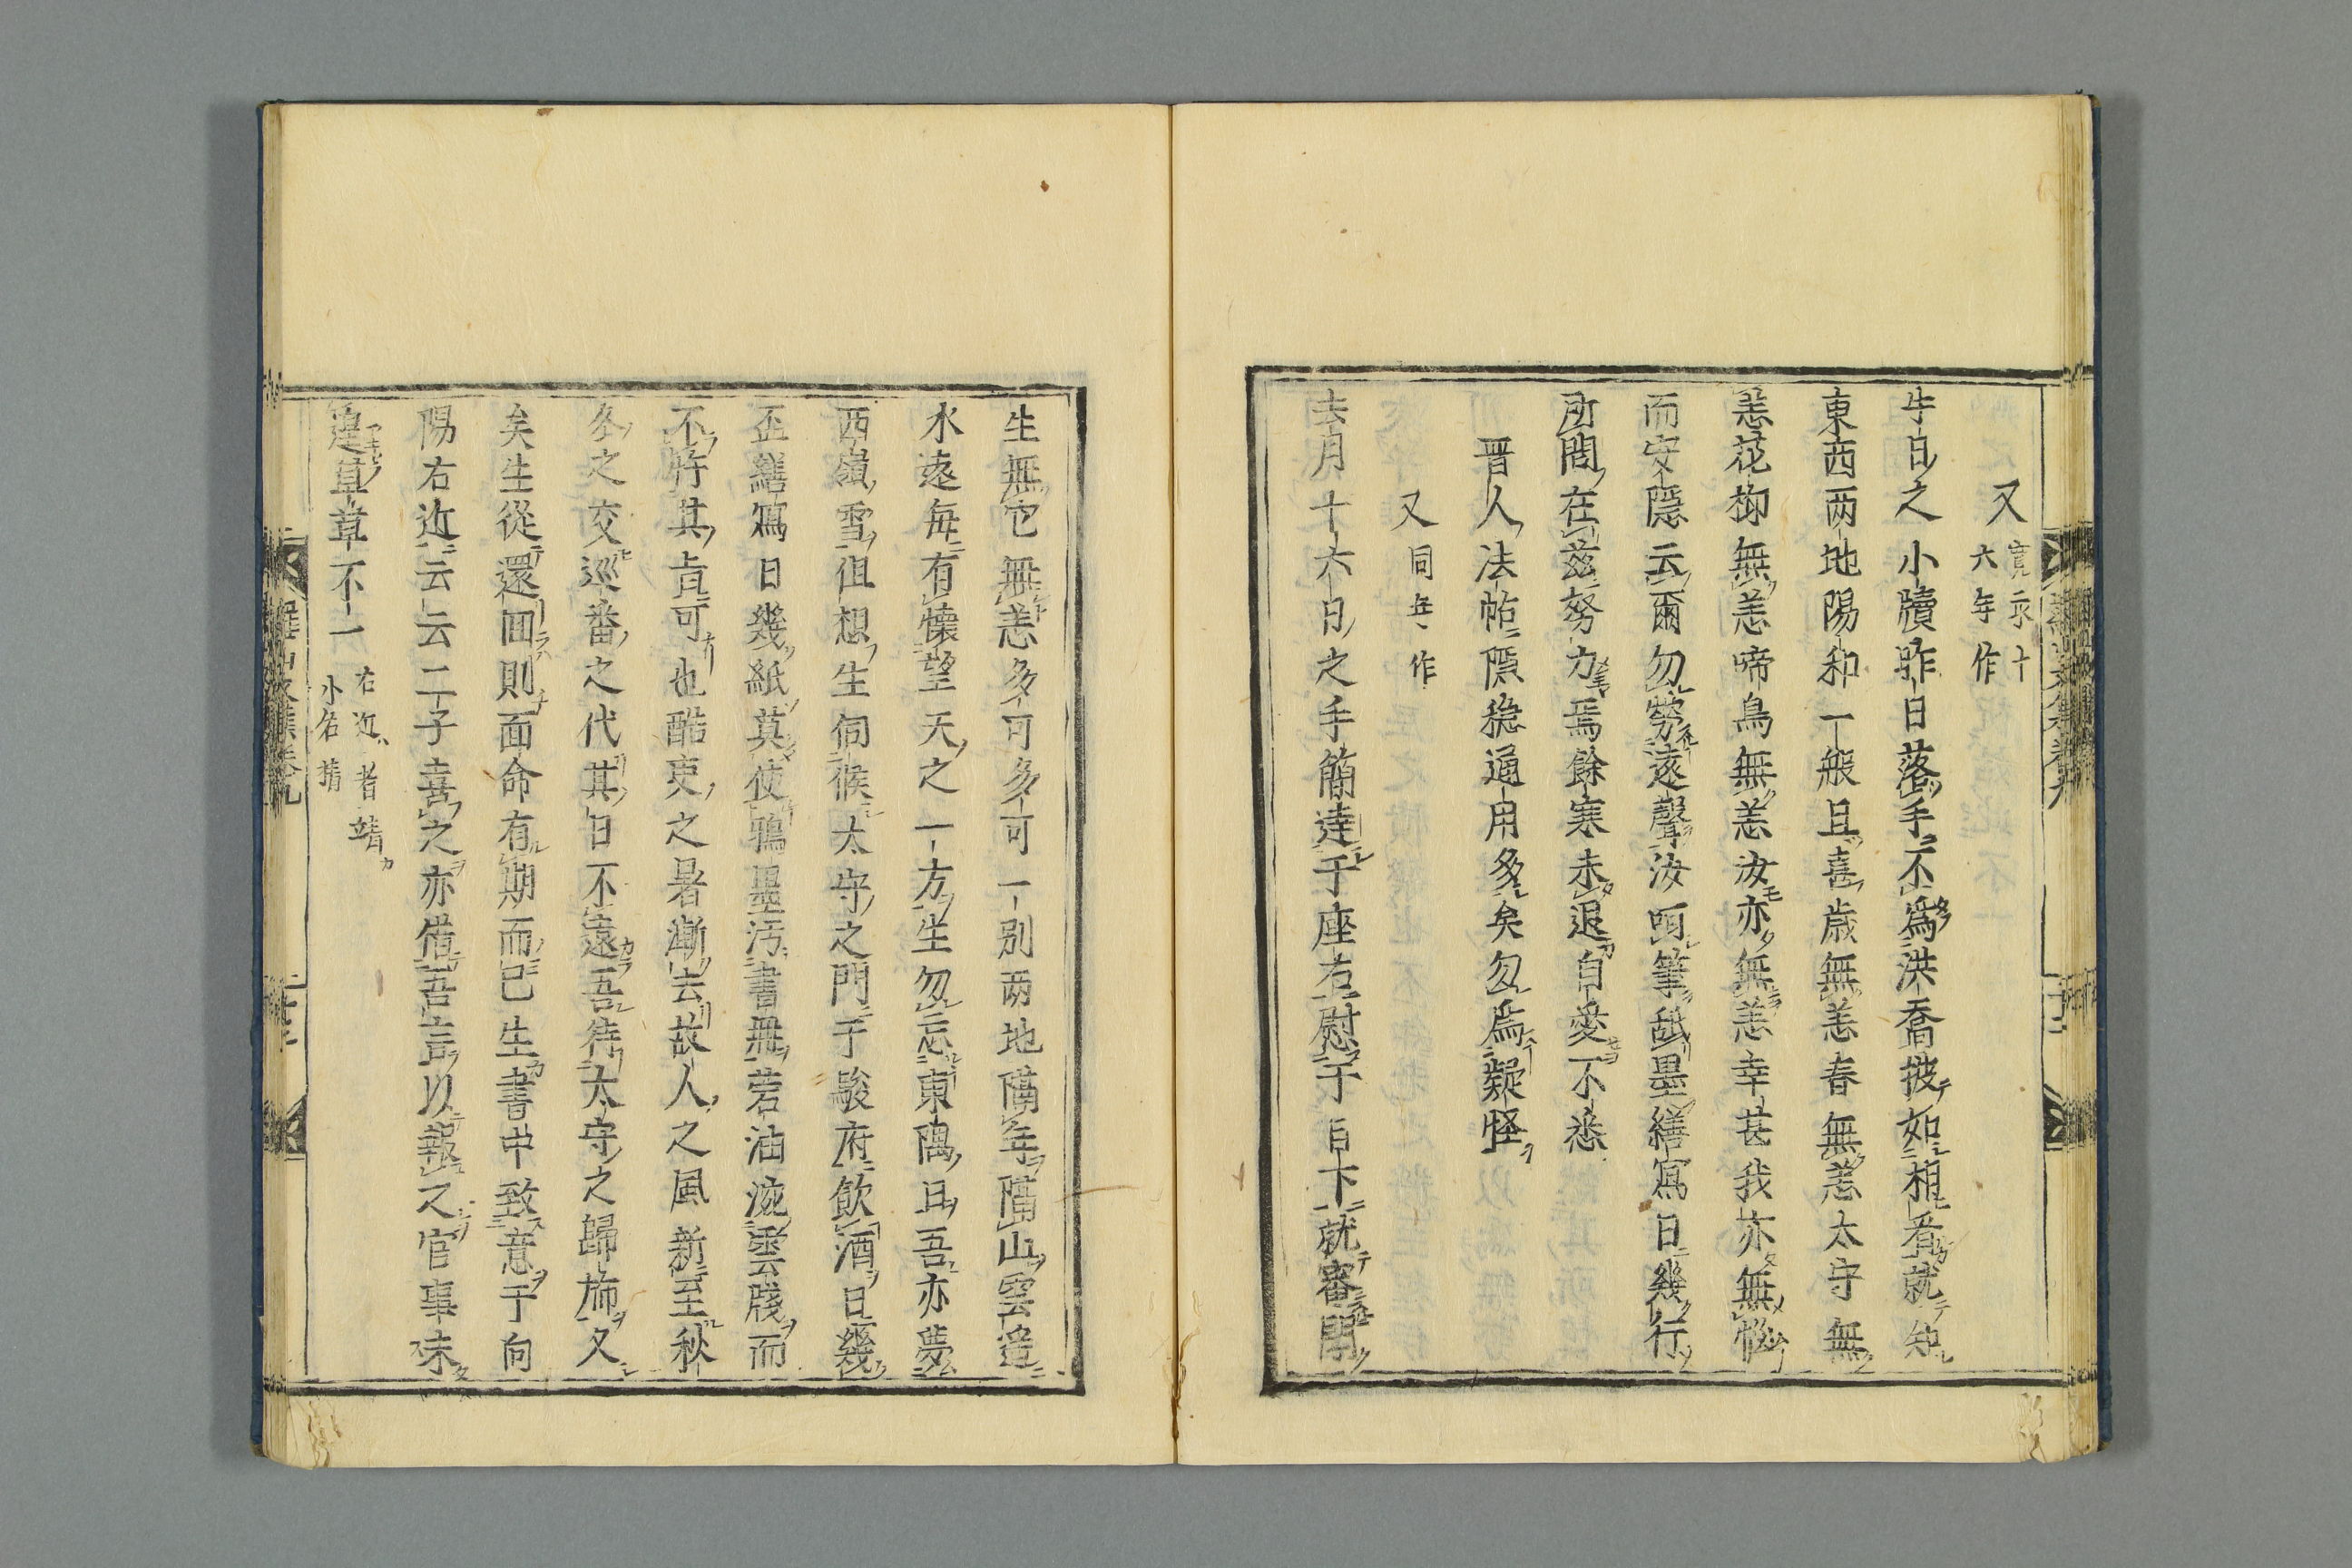 又 寛永十
六年作
牛日之小牘昨日落手不爲洪喬披如相看就知
東西两地陽和一般且喜歳無恙春無恙太守無
恙花柳無恙啼鳥無恙汝亦無恙幸甚我亦無惱
而安隱云爾勿勞遠聲汝呵筆舐墨繕寫日幾行
所閲在茲努力焉餘寒未退自愛不悉
晋人法帖隱穏通用多矣勿爲疑怪
又 同年作
去月十六日之手簡達于座右慰于目下就審聞
生無它無恙多可多可一別两地隔年隔山雲遮
水遠毎有懷望天之一方生勿忘東隅且吾亦夢
西嶺雪徂想生伺候太守之門于駿府飲酒日幾
盃繕寫日幾紙莫使鴉墨汚書册若油涴雲牋而
不忤其旨可也酷吏之暑漸去故人之風新至秋
冬之交巡番之代其日不遠吾待太守之歸旆久
矣生從還囬則面命有期而已生書中致意于向
陽右近云云二子喜之亦借吾言以報之官事未
遑草草不一 右近者靖
小名
羅山文集卷九